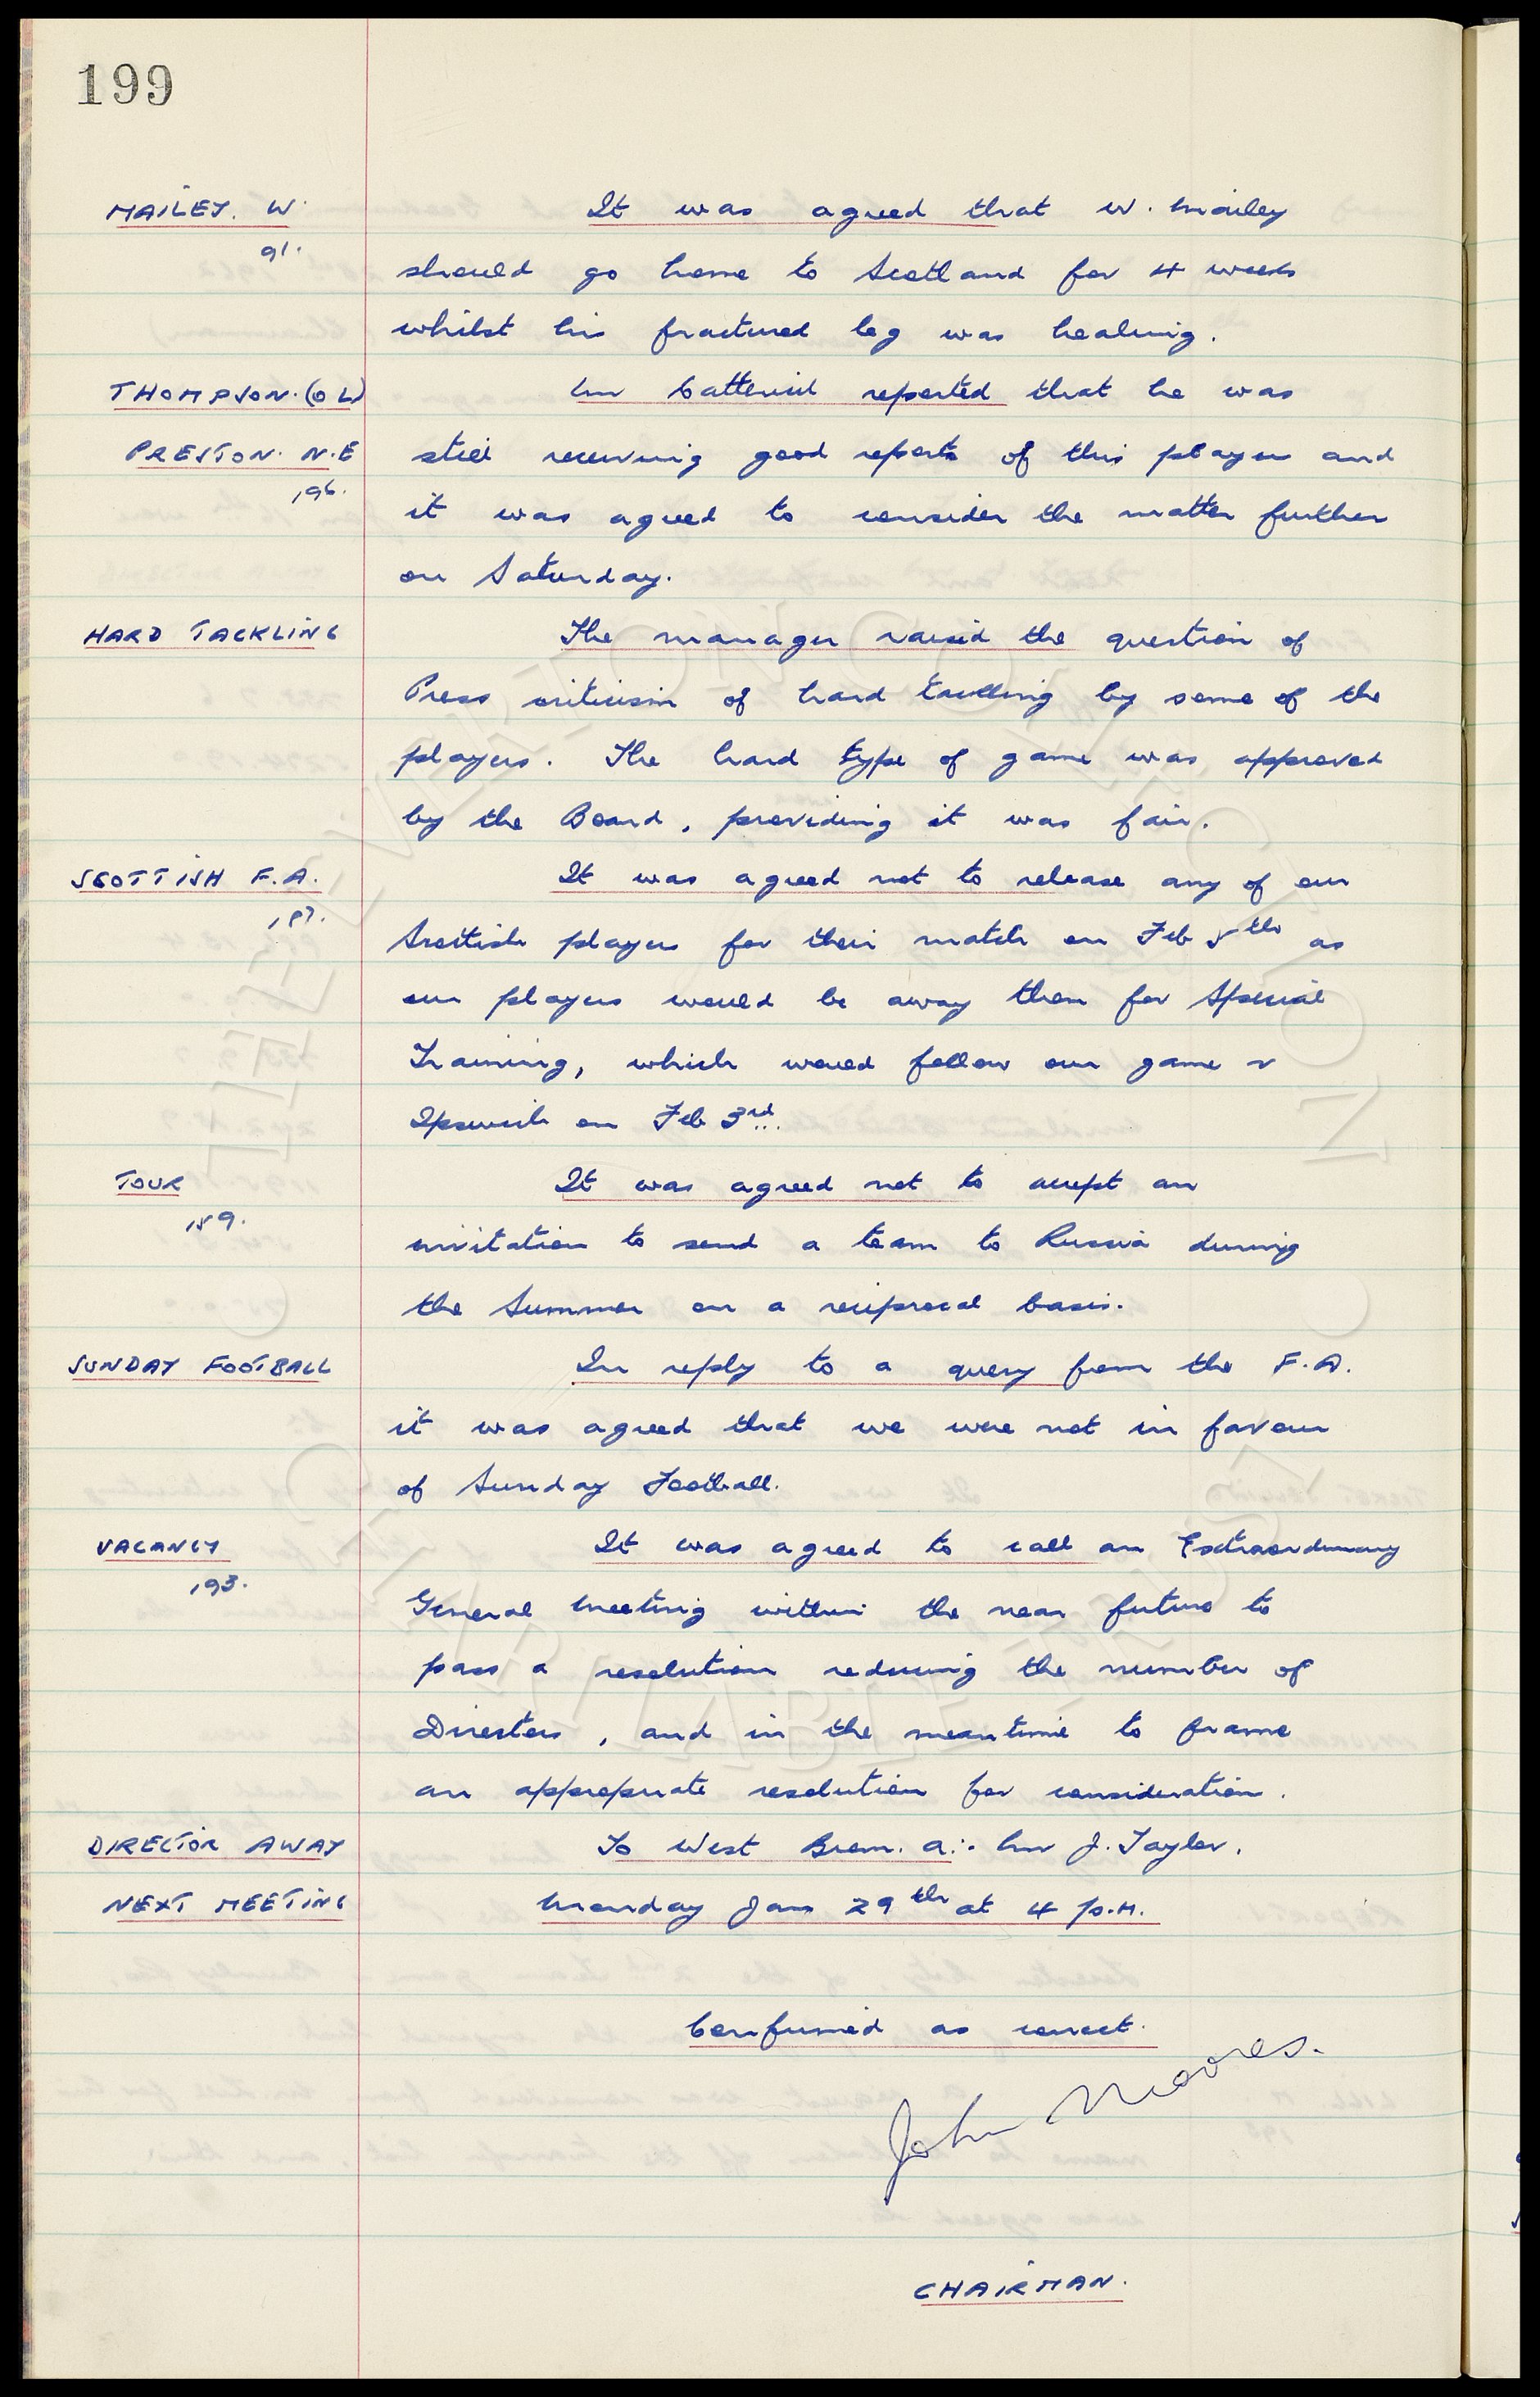 199
MAILEY. W.
91.
It was agreed that W. Mailey
should go home to Scotland for 4 weeks
whilst his fractured leg was healing.
THOMPSON. (O L)
PRESTON. N.E
196.
Mr Catterick reported that he was
still receiving good reports of this player and
it was agreed to consider the matter further
on Saturday.
HARD TACKLING
The manager raised the question of
Press criticism of hard tackling by some of the
players. The hard type of game was approved
by the Board, providing it was fair.
SCOTTISH F.A.
It was agreed not to release any of our
Scottish players for their match on Feb 5th as
our players would be away then for Special
Training, which would follow our game v
Ipswich on Feb 3rd.
TOUR
189.
It was agreed not to accept an
invitation to send a team to Russia during
the Summer on a reciprocal basis.
SUNDAY FOOTBALL
In reply to a query from the F.A.
it was agreed that we were not in favour
of Sunday Football.
VACANCY
193.
It was agreed to call an Extraordinary
General Meeting within the near future to
pass a resolution reducing the number of
Directors, and in the meantime to frame
an appropriate resolution for consideration.
DIRECTOR AWAY
To West Brom. A:- Mr J. Taylor.
NEXT MEETING
Monday Jan 29th at 4 p.m.
Confirmed as correct.
John Moores.
CHAIRMAN.